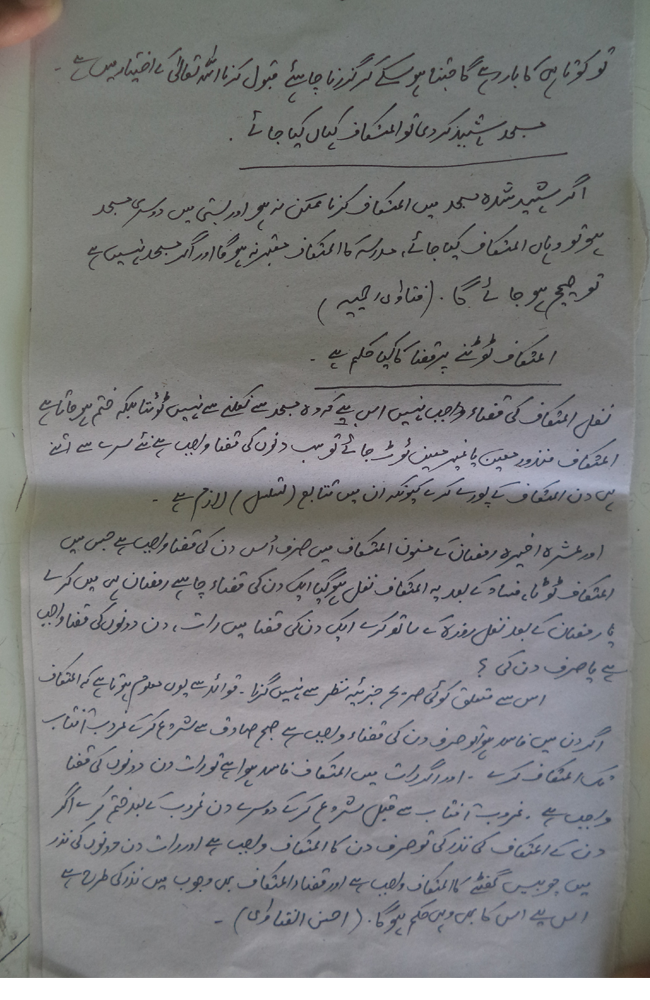 تو کوتاہی کا بار رہے گا جتنا ہو سکے کر گزرنا چاہئے قبول کرنا اللہ تعالیٰ کے اختیار میں ہے ۔
مسجد شہید کر دی تو اعتکاف کہاں کیا جائے ۔
اگر شہید شدہ مسجد میں اعتکاف کرنا ممکن نہ ہو اور بستی میں دوسری مسجد
ہو تو وہاں اعتکاف کیا جائے، مدرسہ کا اعتکاف معتبر نہ ہوگا اور اگر مسجد نہیں ہے
تو صحیح ہو جائے گا ۔ (فتاویٰ رحیمیہ)
اعتکاف ٹوٹنے پر قضا کا کیا حکم ہے ۔
نفل اعتکاف کی قضاء واجب نہیں اس لیے کہ وہ مسجد سے نکلنے سے نہیں ٹوٹتا بلکہ ختم ہو جاتا ہے
اعتکاف منذور معین یا غیر معین ٹوٹ جائے تو سب دنوں کی قضا واجب ہے نئے سرے سے اتنے
ہی دن اعتکاف کے پورے کرے کیونکہ ان میں تتابع (تسلسل) لازم ہے ۔
اور عشرہ اخیرہ رمضان کے مسنون اعتکاف میں صرف اُس دن کی قضا واجب ہے جس میں
اعتکاف ٹوٹا، فساد کے بعد یہ اعتکاف نفل ہوگیا ایک دن کی قضاء چاہے رمضان ہی میں کرے
یا رمضان کے بعد نفل روزہ کے ساتھ کرے ایک دن کی قضا میں رات، دن دونوں کی قضا واجب
ہے یا صرف دن کی ؟
اس سے متعلق کوئی صریح جزئیہ نظر سے نہیں گزرا ۔ قواعد سے یوں معلوم ہوتا ہے کہ اعتکاف
اگر دن میں فاسد ہوا تو صرف دن کی قضاء واجب ہے صبح صادق سے شروع کرکے غروب آفتاب
تک اعتکاف کرے ۔ اور اگر رات میں اعتکاف فاسد ہوا ہے تو رات دن دونوں کی قضا
واجب ہے ۔ غروب آفتاب سے قبل شروع کرکے دوسرے دن غروب کے بعد ختم کرے اگر
دن کے اعتکاف کی نذر کی تو صرف دن کا اعتکاف واجب ہے اور رات دن دونوں کی نذر
میں چوبیس گھنٹے کا اعتکاف واجب ہے اور قضاء اعتکاف بھی وجوب میں نذر کی طرح ہے
اس لیے اس کا بھی وہی حکم ہوگا ۔ (احسن الفتاویٰ) ۔